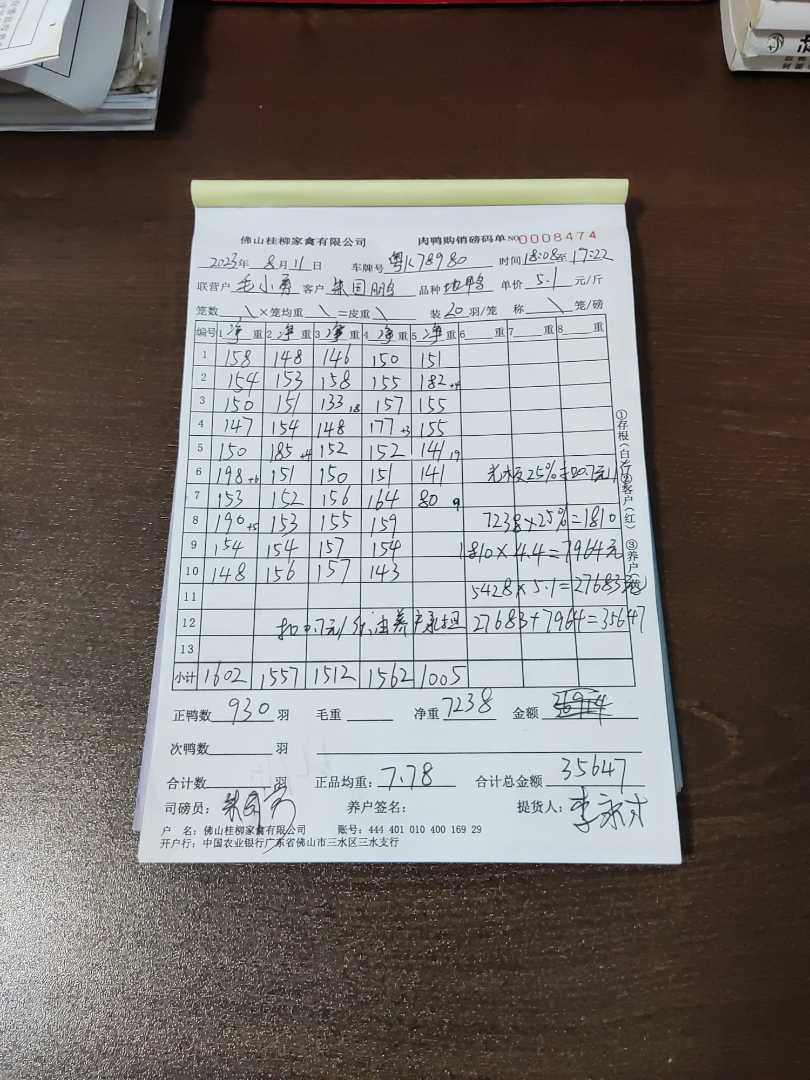 佛山桂柳家禽有限公司 肉鸭购销磅码单 NO 0008474
2023年 8月 11日 车牌号 粤K78980 时间 18:08至 19:22
联营户 毛小勇 客户 朱国鹏 品种 地鸭 单价 5.1 元/斤
笼数 \ ×笼均重 \ =皮重 \ 装 20 羽/笼 称 \ 笼/磅
编号 1 净 重 2 净 重 3 净 重 4 净 重 5 净 重 6 重 7 重 8 重
1 158 148 146 150 151
2 154 153 158 155 182+4
3 150 151 133 18 157 155
4 147 154 148 177+3 155
5 150 185+4 152 152 141 19
6 198+6 151 150 151 141 25%扣0.7元/斤
7 153 152 156 164 80 9
8 190+5 153 155 159 7238×25%=1810
9 154 154 157 154 1810×4.4=7964元
10 148 156 157 143
11 5428×5.1=27683元
12 扣0.7元/斤,由养户承担 27683+7964=35647
13
小计 1602 1557 1512 1562 1005
正鸭数 930 羽 毛重 净重 7238 金额
次鸭数 羽
合计数 羽 正品均重: 7.78 合计总金额 35647
司磅员: 养户签名: 提货人: 李
户 名: 佛山桂柳家禽有限公司 账号: 444 401 010 400 169 29
开户行: 中国农业银行广东省佛山市三水区三水支行
①存根(白) ②客户(红) ③养户